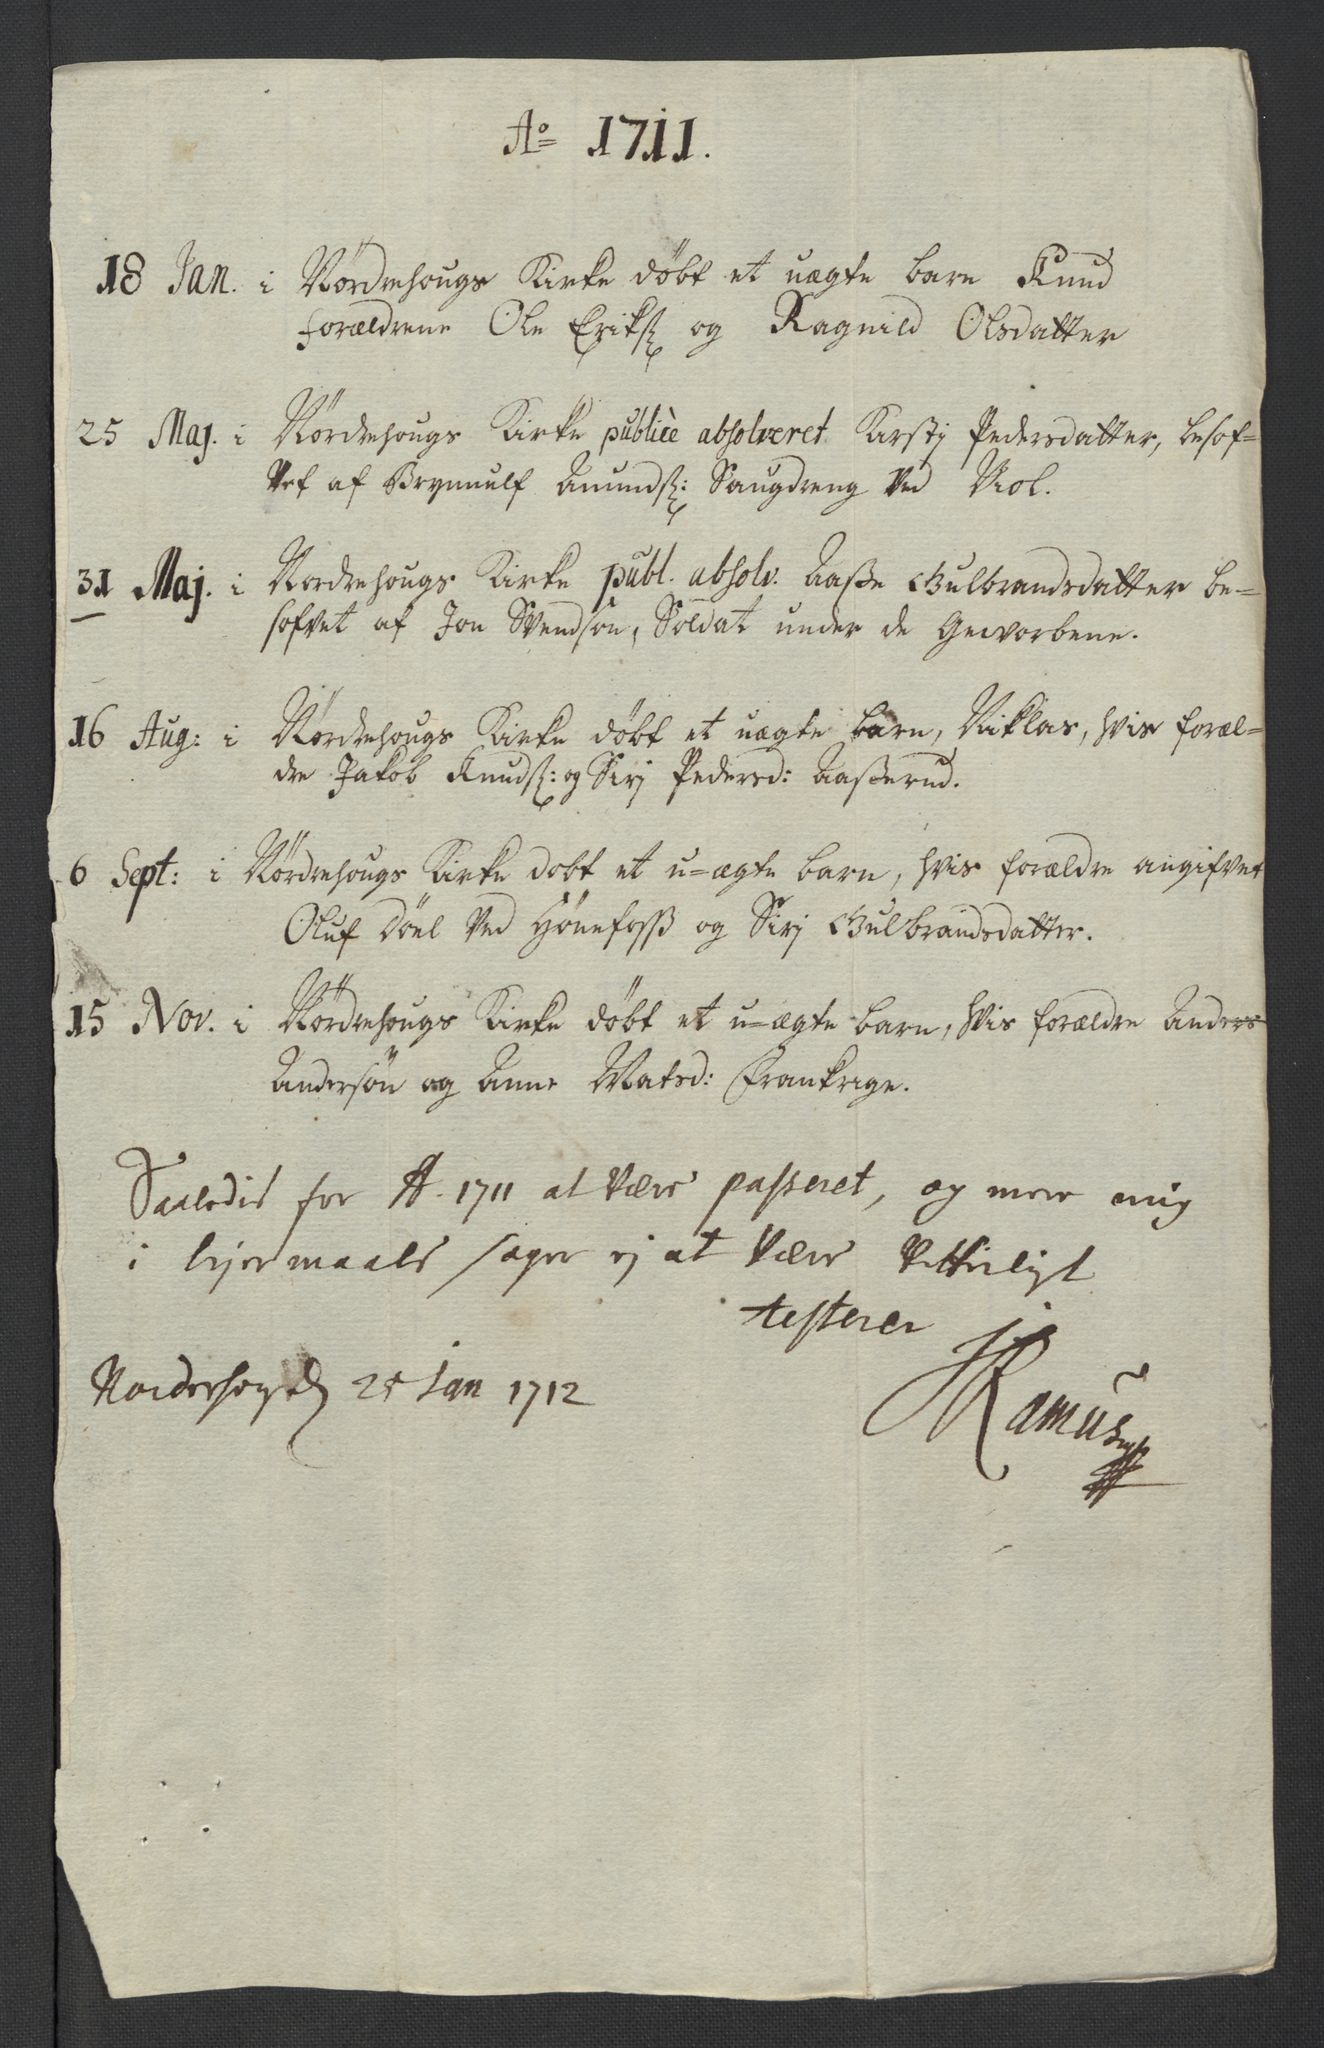 Ao 1711.
18 Jan. i Nördrehougs Kirke döbt et uægte barn Knud
forældrene Ole Erikss: og Ragnild Olsdatter
25 Maj. i Nördrehougs Kirke publicè absolveret Kirstj Pedersdatter, besof=
vet af Brynnulf Amundss: Saugdreng ved Viol.
31 Maj. i Nordrehougs Kirke publ. absolv. Aaße Gulbrandsdatter be=
sofvet af Jon Svendson, Soldat under de Geworbene.
16 Aug: i Nördrehougs Kirke döbt et uægte barn, Niklas, hvis foræl=
dre Jakob Knudss: og Sirj Pedersd: Aaßerud.
6 Sept: i Nördrehougs Kirke dobt et u=ægte barn, hvis forældre angifvet
Oluf Döel ved Hönefoss og Sirj Gulbrandsdatter.
15 Nov. i Nördrehougs Kirke döbt et u=ægte barn, hvis forældre Anders
Andersön og Anne Matsd: Frankrige.
Saaledis for A. 1711 at være passeret, og mere mig
i lejermaals sager ej at være vitterligt
testerer
Norderhoug d 24 Jan 1712
JRamus